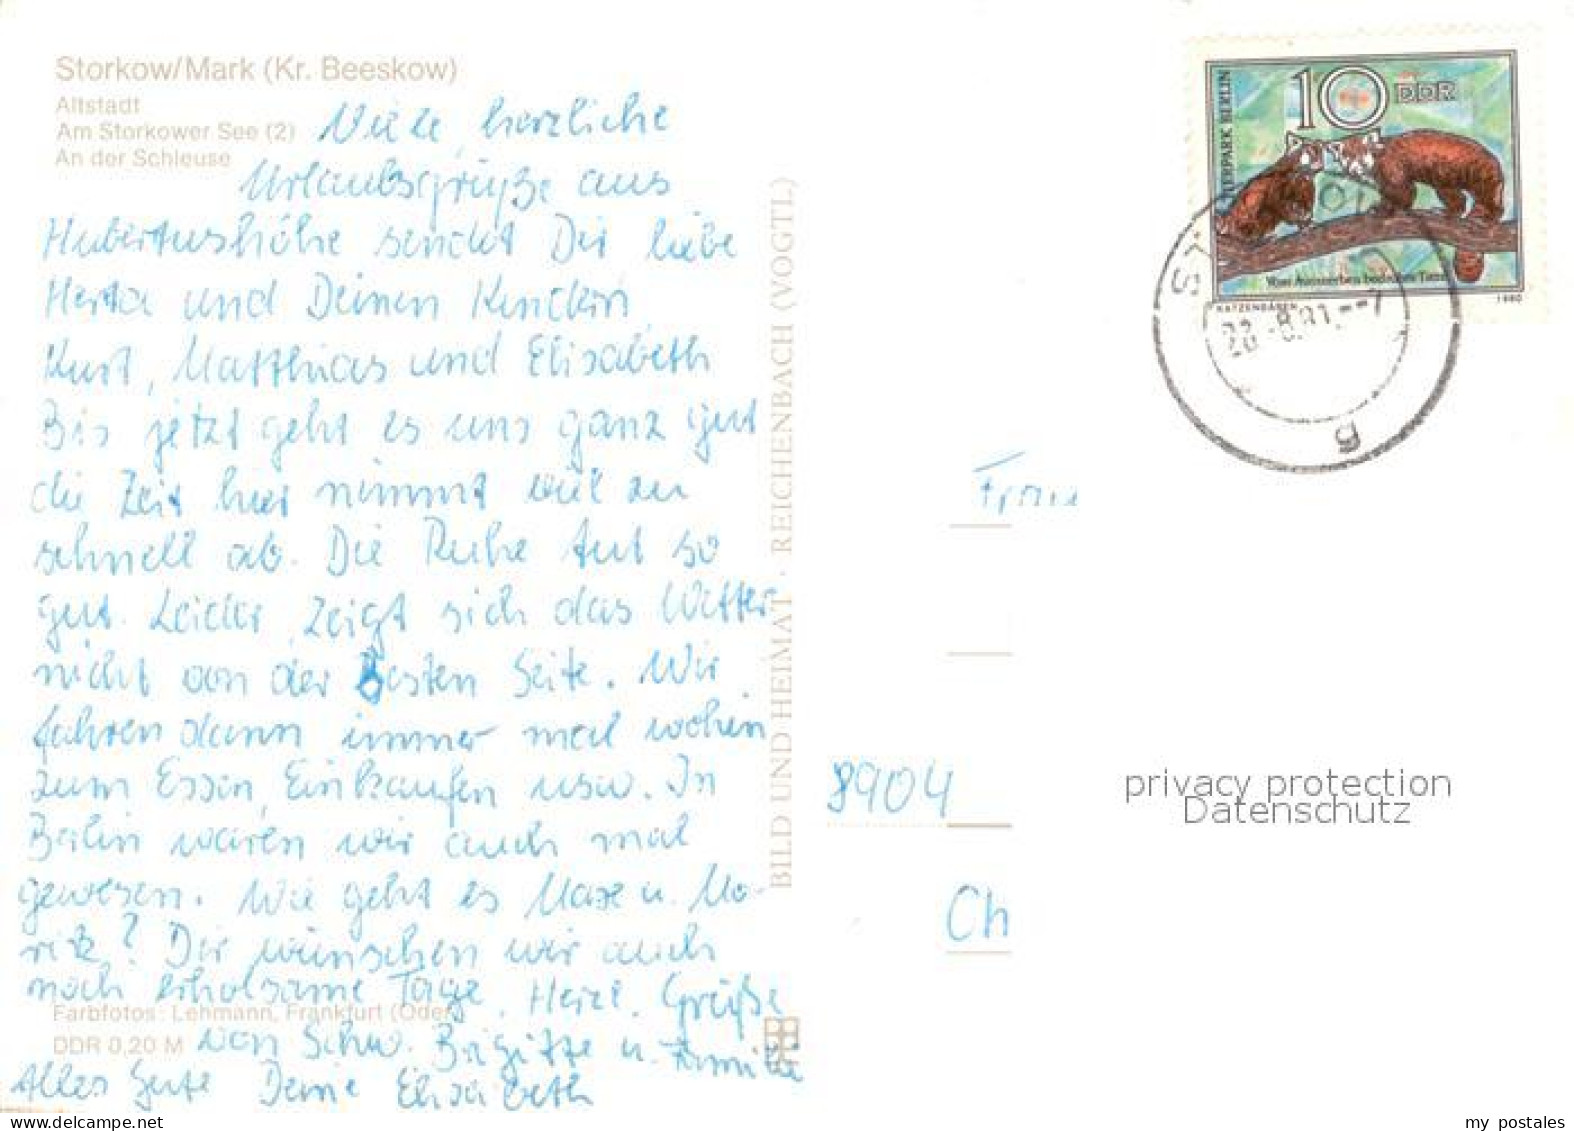 Storkow/Mark (Kr. Beeskow)
Altstadt
Am Storkower See (2)
An der Schleuse
Viele herzliche
Urlaubsgrüße aus
Hubertushöhe sendet Dir liebe
Herta und Deinen Kindern
Kurt, Matthias und Elisabeth
Bis jetzt geht es uns ganz gut
die Zeit hier nimmt viel zu
schnell ab. Die Ruhe tut so
gut. Leider zeigt sich das Wetter
nicht von der Besten Seite. Wir
fahren dann immer mal wohin
zum Essen, Einkaufen usw. In
Berlin waren wir auch mal
gewesen. Wie geht es Maxe u. Mo-
ritz? Dir wünschen wir auch
noch erholsame Tage. Herzl. Grüße
von Schw. Brigitte u. Familie
Alles Gute Deine Elisabeth
Farbfotos: Lehmann, Frankfurt (Oder)
DDR 0,20 M
BILD UND HEIMAT · REICHENBACH (VOGTL)
TIERPARK BERLIN
10 DDR
Vom Aussterben bedrohte Tiere
KATZENBÄREN
1980
28.-8.81.--7
g
Frau
8904
Ch
privacy protection
Datenschutz
www.delcampe.net
my_postales